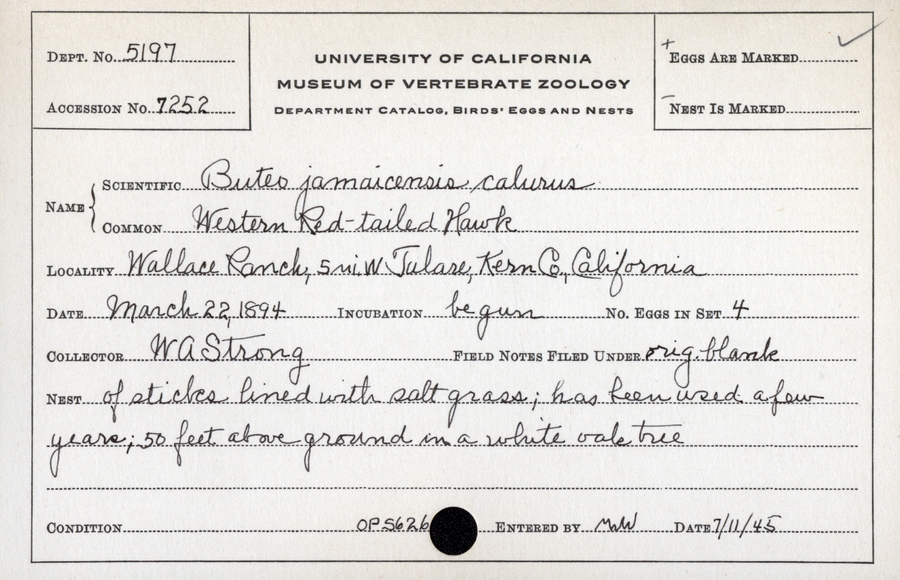 DEPT. NO. 5197
ACCESSION NO. 7252
UNIVERSITY OF CALIFORNIA
MUSEUM OF VERTEBRATE ZOOLOGY
DEPARTMENT CATALOG, BIRDS' EGGS AND NESTS
+ EGGS ARE MARKED
- NEST IS MARKED
NAME
SCIENTIFIC Buteo jamaicensis calurus
COMMON Western Red-tailed Hawk
LOCALITY Wallace Ranch, 5 mi. W Tulare, Kern Co., California
DATE March 22, 1894 INCUBATION begun NO. EGGS IN SET 4
COLLECTOR W A Strong FIELD NOTES FILED UNDER orig. blank
NEST of sticks lined with salt grass; has been used a few
years; 50 feet above ground in a white oak tree
CONDITION OPS626 ENTERED BY MWW DATE 7/11/45